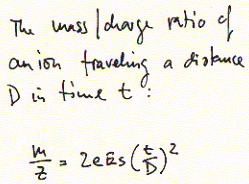 The mass/charge ratio of
an ion traveling a distance
D in time t :
m/z = 2eEs(t/D)²